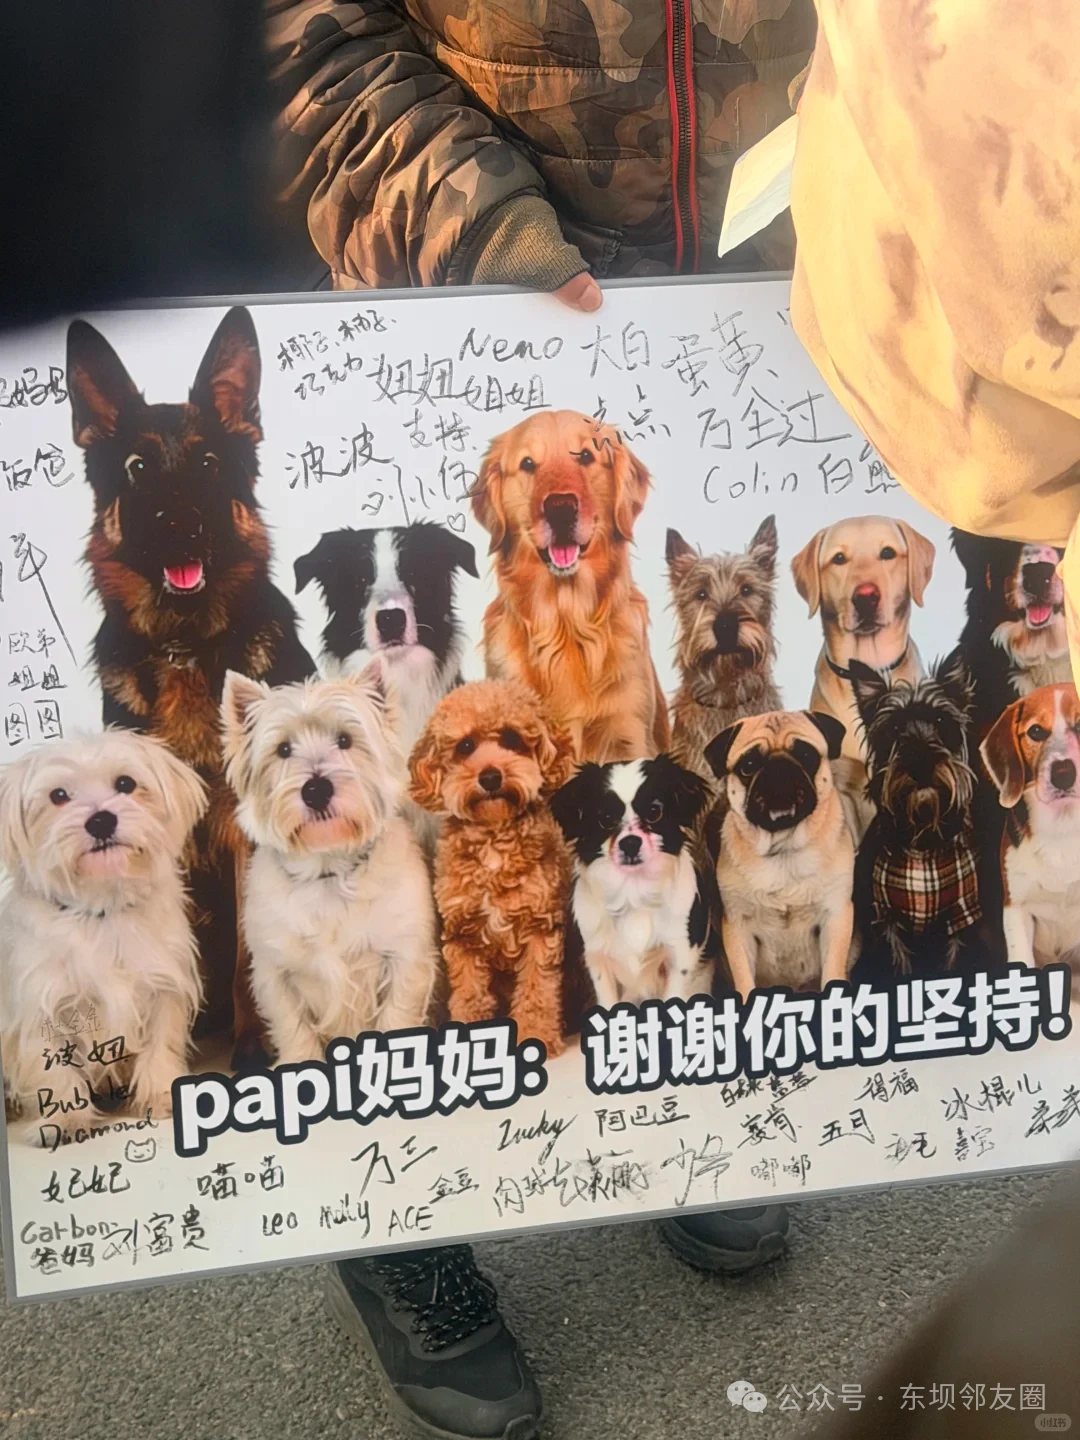 Neno
大白
蛋黄
柚子
巧克力
妞妞
姐姐
支持
点点
万全过
波波
刘小伍
Colin 白熊
饭爸
欧弟
姐姐
图图
波妞
Bubble
Diamond
papi妈妈：谢谢你的坚持！
得福
冰棍儿
Lucky
阿巴豆
五月
喜宝
万三
妃妃
喵喵
金豆
嘟嘟
Carbon
爸妈
刘富贵
Leo
Molly
ACE
公众号 · 东坝邻友圈
小红书